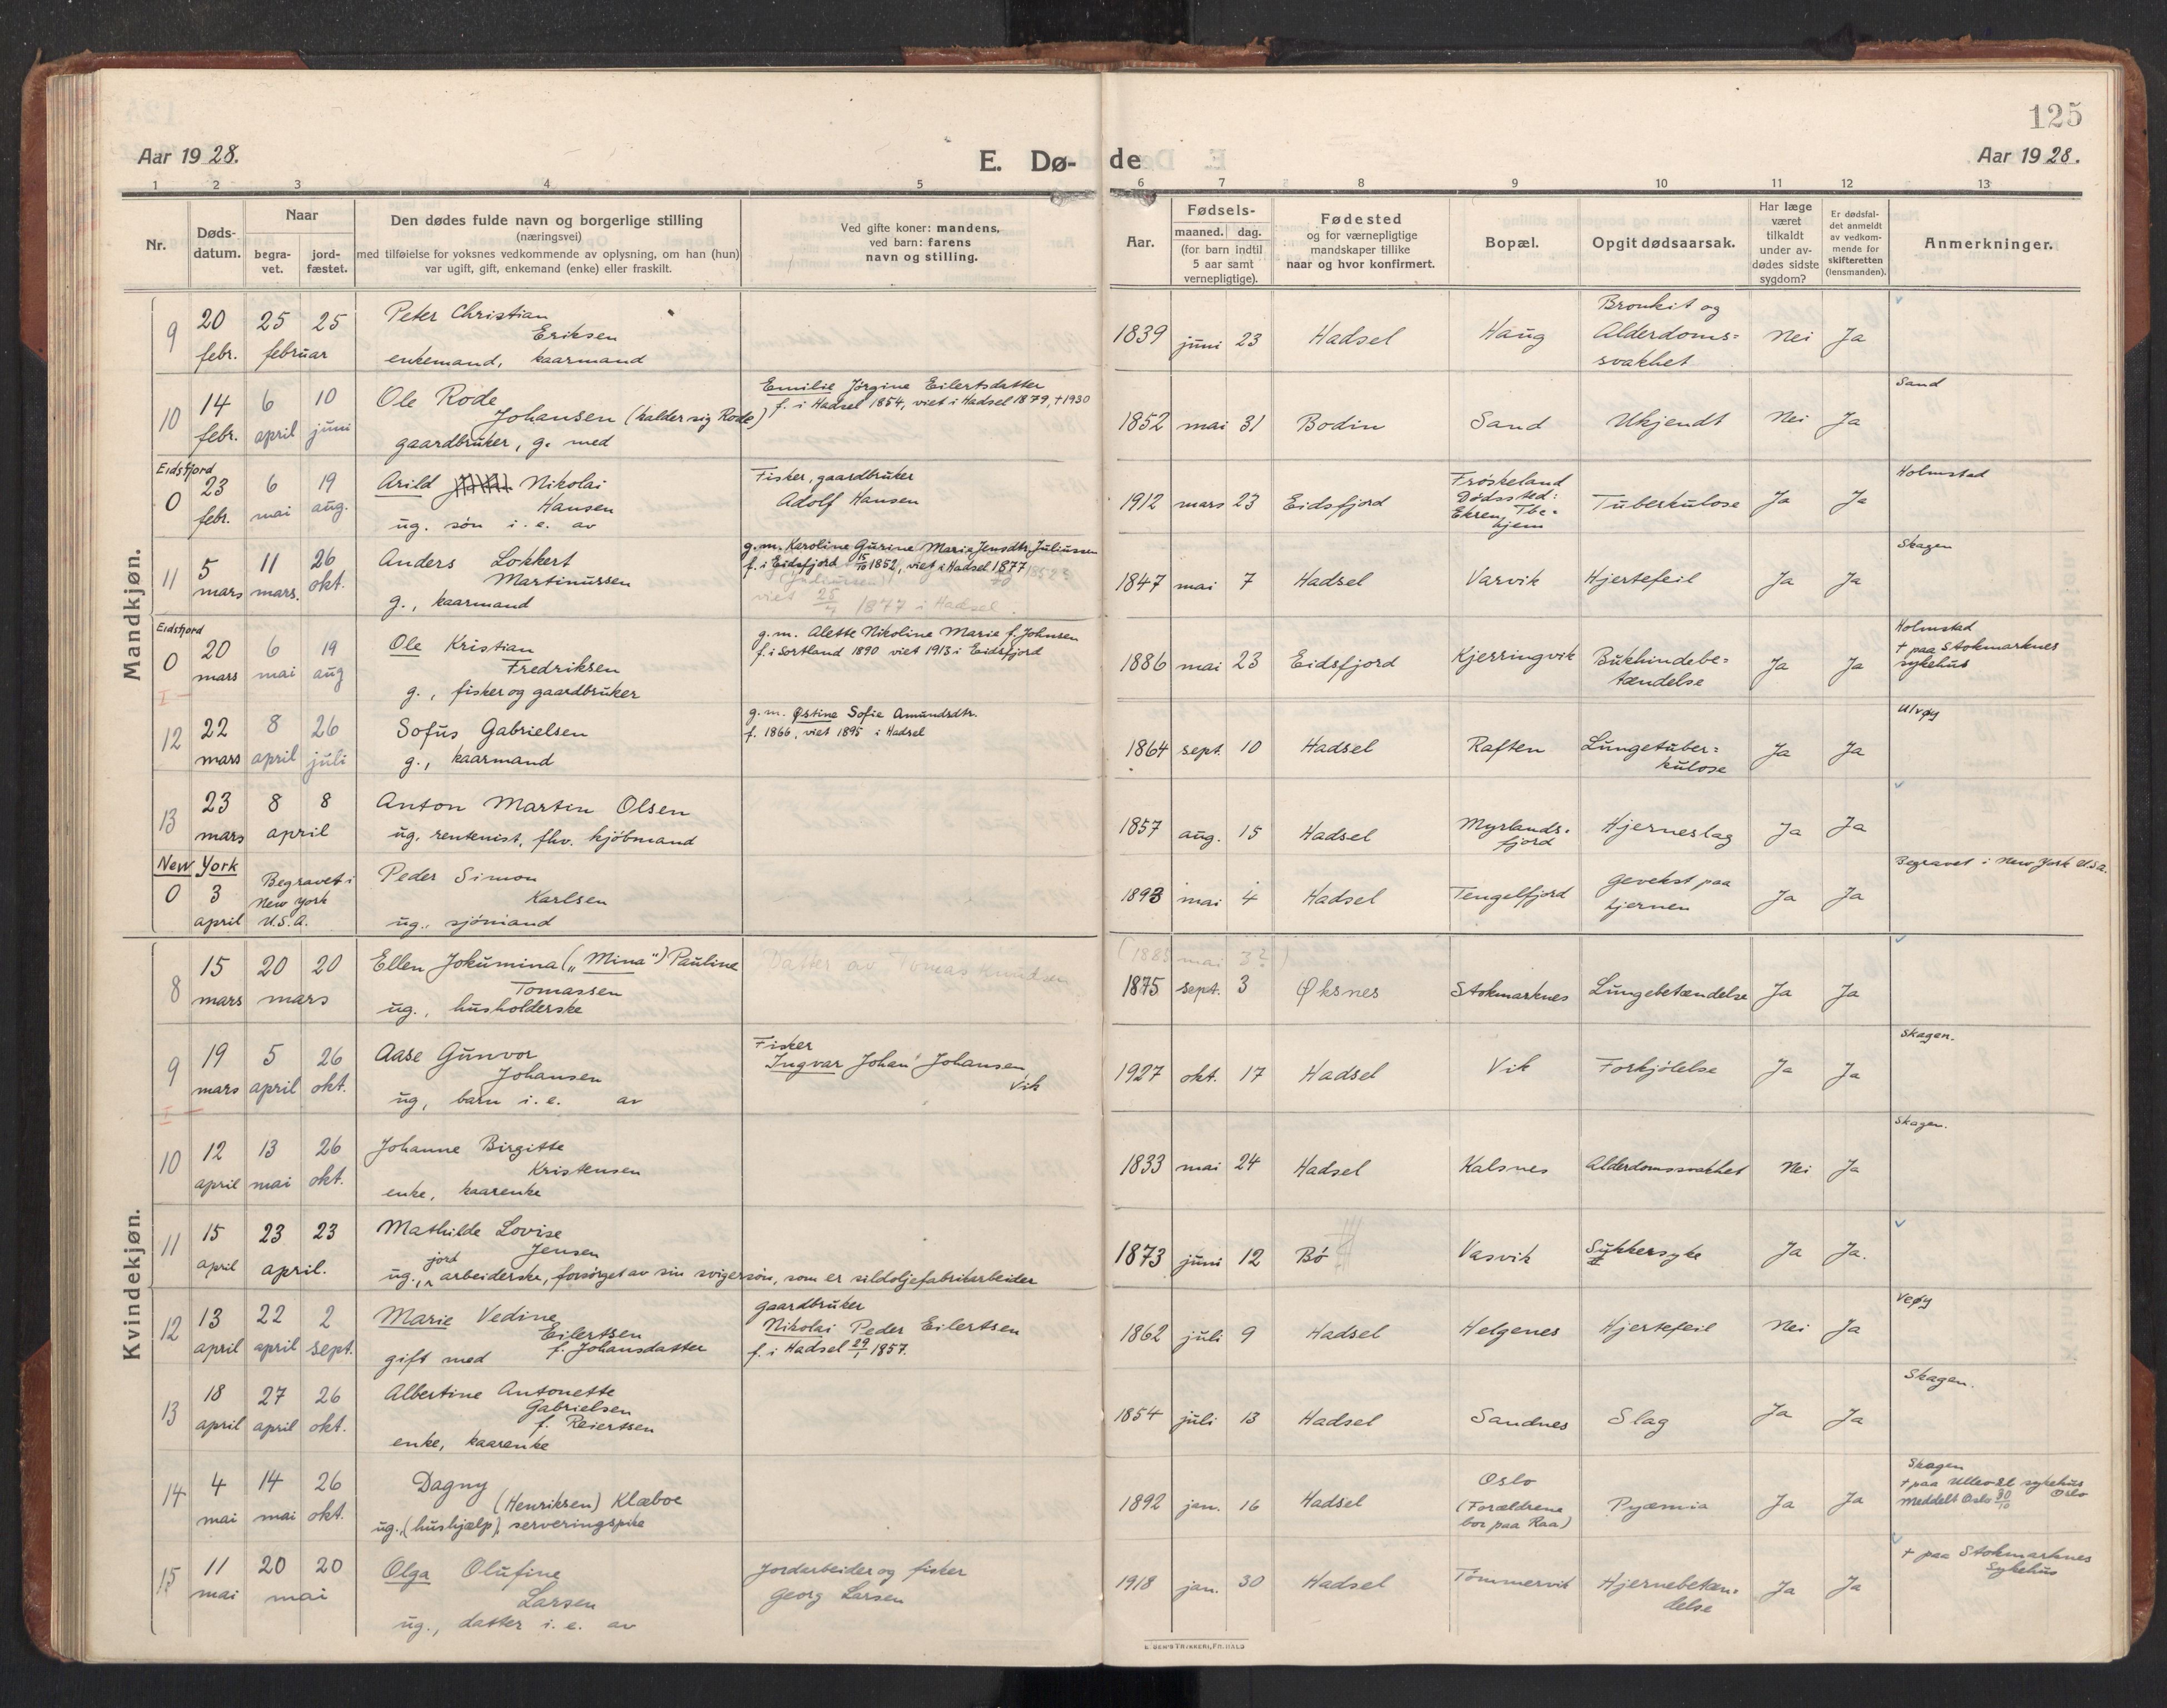 125
Aar 1928.
E. Dø- de
Aar 1928.
1 2 3 4 5 6 7 8 9 10 11 12 13
Nr.
Døds-
datum.
Naar
begra-
vet.
jord-
fæstet.
Den dødes fulde navn og borgerlige stilling
(næringsvei)
med tilføielse for voksnes vedkommende av oplysning, om han (hun)
var ugift, gift, enkemand (enke) eller fraskilt.
Ved gifte koner: mandens,
ved barn: farens
navn og stilling.
Aar.
Fødsels-
maaned. dag.
(for barn indtil
5 aar samt
vernepligtige).
Fødested
og for værnepligtige
mandskaper tillike
naar og hvor konfirmert.
Bopæl.
Opgit dødsaarsak.
Har læge
været
tilkaldt
under av-
dødes sidste
sygdom?
Er dødsfal-
det anmeldt
av vedkom-
mende for
skifteretten
(lensmanden).
Anmerkninger.
Mandkjøn.
9 20 febr. 25 25 februar
Peter Christian
Eriksen
enkemand, kaarmand
1839 juni 23 Hadsel Haug
Bronkit og
Alderdoms-
svakhet
Nei Ja
10 14 febr. 6 april 10 juni
Ole Rode
Johansen (kalder sig Rode)
gaardbruker, g. med
Emilie Jørgine Eilertsdatter
f. i Hadsel 1854, viet i Hadsel 1879, +1930
1852 mai 31 Bodin Sand Ukjendt Nei Ja
Sand
Eidsfjord
0 23 febr. 6 mai 19 aug.
Arild Nikolai
Hansen
ug. søn i. e. av
Fisker, gaardbruker
Adolf Hansen
1912 mars 23 Eidsfjord
Frøskeland
Dødssted:
Ekren, Tbc-
hjem
Tuberkulose Ja Ja
Holmstad
11 5 mars 11 mars. 26 okt.
Anders Lokkert
Martinussen
g., kaarmand
g.m. Karoline Gurine Marie Jensdtr. Juliussen
f. i Eidsfjord 15/10 1852, viet i Hadsel 1877
viet 25/ 1877 i Hadsel.
1847 mai 7 Hadsel Varvik Hjertefeil Ja Ja
Skagen
Eidsfjord
0 20 mars 6 mai 19 aug
Ole Kristian
Fredriksen
g., fisker og gaardbruker
g. m. Alette Nikoline Marie f. Johnsen
f. i Sortland 1890 viet 1913 i Eidsfjord
1886 mai 23 Eidsfjord Kjerringvik
Bukhindebe-
tændelse
Ja Ja
Holmstad
+ paa Stokmarknes
sykehus
12 22 mars 8 april 26 juli
Sofus Gabrielsen
g., kaarmand
g. m. Østine Sofie Amundsdtr.
f. 1866, viet 1895 i Hadsel
1864 sept. 10 Hadsel Raften
Lungetuber-
kulose
Ja Ja
Ulvøy
13 23 mars 8 8 april
Anton Martin Olsen
ug. rentenist, fhv. kjøbmand
1857 aug. 15 Hadsel
Myrlands-
fjord
Hjerneslag Ja Ja
New York
0 3 april
Begravet i
New York
U.S.A.
Peder Simon
Karlsen
ug., sjømand
1893 mai 4 Hadsel Tengelfjord
Gevekst paa
hjernen
Ja Ja
Begravet i New York U.S.A.
Kvindekjøn.
8 15 mars 20 20 mars
Ellen Jokumina („Mina") Pauline
Tomassen
ug., husholderske
Datter av Tomas Knudsen
(1885 mai 3?)
1875 sept. 3 Øksnes Stokmarknes Lungebetændelse Ja Ja
9 19 mars 5 april 26 okt.
Aase Gunvor
Johansen
ug, barn i. e. av
Fisker
Ingvar Johan Johansen
Vik
1927 okt. 17 Hadsel Vik Forkjølelse Ja Ja
Skagen.
10 12 april 13 mai 26 okt.
Johanne Birgitte
Kristensen
enke, kaarenke
1833 mai 24 Hadsel Kalsnes Alderdomssvakhet Nei Ja
Skagen.
11 15 april 23 23 april.
Mathilde Lovise
Jensen
ug., jordarbeiderske, forsørget av sin svigersøn, som er sildoljefabrikarbeider
1873 juni 12 Bø Vasvik Sukkersyke Ja Ja.
12 13 april 22 april 2 sept.
Marie Vedine
Eilertsen
f. Johansdatter
gift med
gaardbruker
Nikolai Peder Eilertsen
f. i Hadsel 29/1 1857.
1862 juli 9 Hadsel Helgenes Hjertefeil Nei Ja
Veøy
13 18 april 27 april 26 okt.
Albertine Antonette
Gabrielsen
f. Reiertsen
enke, kaarenke
1854 juli 13 Hadsel Sandnes Slag Ja Ja
Skagen.
14 4 mai 14 mai 26 okt.
Dagny
(Henriksen) Klæboe
ug., (hushjælp), serveringspike
1892 jan. 16 Hadsel
Oslo
(Forældrene
bor paa Raa)
Pyæmia Ja Ja
Skagen
+ paa Ullevål sykehus
Oslo
Meddelt Oslo 30/10
15 11 mai 20 20 mai
Olga Olufine
Larsen
ug., datter i. e. av
Jordarbeider og fisker
Georg Larsen
1918 jan. 30 Hadsel Tømmervik
Hjernebetæn-
delse
Ja Ja
+ paa Stokmarknes
Sykehus